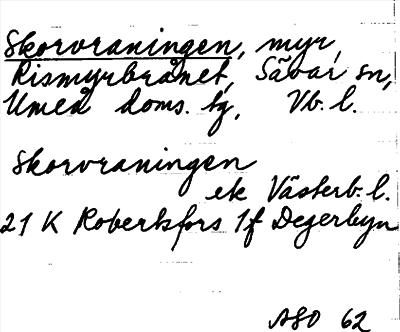 Skorvraningen, myr,
Rismyrbrånet, Sävar sn,
Umeå doms. tg, Vb. l.
Skorvraningen
ek Västerb. l.
21 K Robertsfors 1f Degerbyn
ASO 62